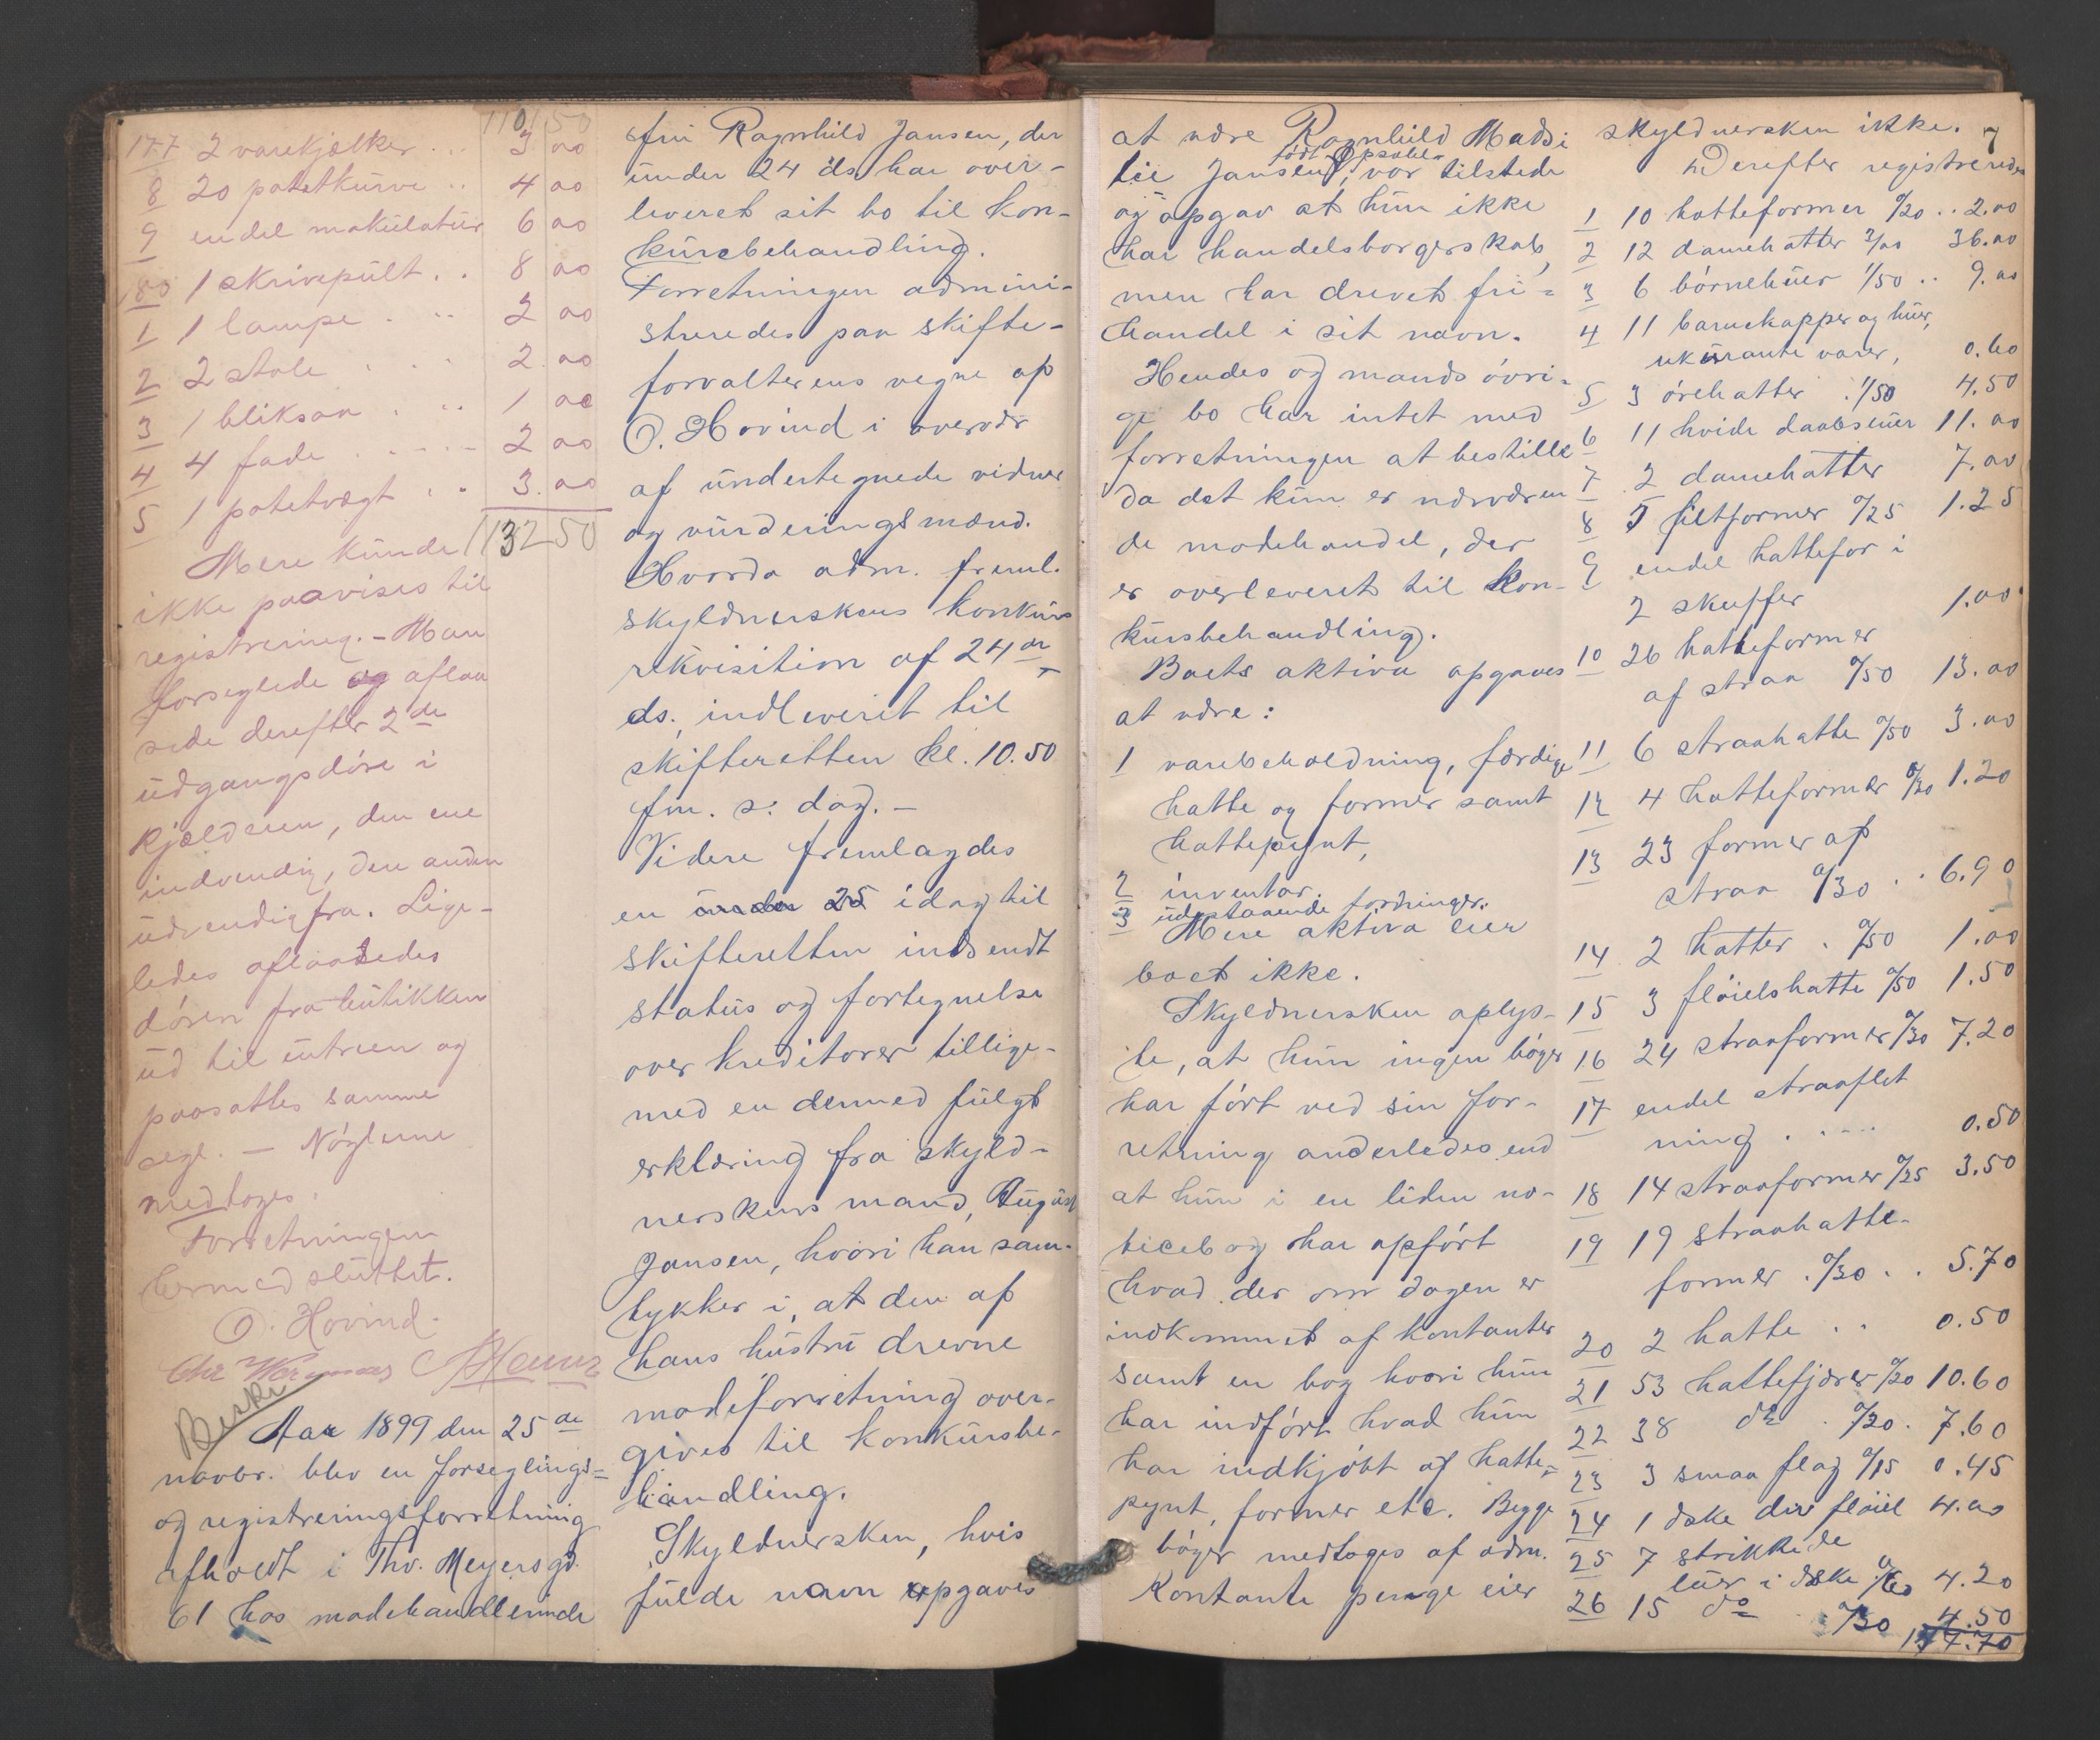 1101 50
177 2 varekjælker ... 3 00
8 20 potetkurve .. 4 00
9 endel makulatur 6 00
180 1 skrivepult .. 8 00
1 1 lampe . .. 2 00
2 2 stole . . 2 00
3 1 bliksaa . .. 1 00
4 4 fade . . - - - 2 00
5 1 potetvægt . . 3. 00
1132 50
Mere kunde
ikke paavises til
registrering. - Man
forseglede og aflaa
sede derefter 2de
udgangsdøre i
kjælderen, den ene
indvendig, den anden
udvendigfra. Lige-
ledes aflaasedes
døren fra butikken
ud til entreen og
paasattes samme
segl. - Nøglerne
medtoges.
Forretningen
hermed sluttet.
O. Hovind.
Chr
Beskr
Aar 1899 den 25de
novbr. blev en forseglings-
og registreringsforretning
afholdt i Thv. Meyersgd.
61 hos modehandlerinde
fru Ragnhild Jansen, der
under 24 ds har over-
leveret sit bo til kon-
kursbehandling.
Forretningen admini-
streredes paa skifte-
forvalterens vegne af
O. Hovind i overvær
af undertegnede vidner
og vurderingsmænd.
Hvorda adm. freml.
skyldnerskens konkurs
rekvisition af 24de
ds. indleveret til
skifteretten kl. 10.50
fm. s. dag. -
Videre fremlagdes
en under 25 idag til
skifteretten indsendt
status og fortegnelse
over kreditorer tillige-
med en dermed fulgt
erklæring fra skyld-
nerskens mand, August
Jansen, hvori han sam-
tykker i, at den af
hans hustru drevne
modeforretning over-
gives til konkursbe-
handling.
Skyldnersken, hvis
fulde navn opgaves
at være Ragnhild Mathi
lie Jansen, født Opsahl, var tilstede
og opgav at hun ikke
har handelsborgerskab,
men har drevet fri-
handel i sit navn.
Hendes og mands øvri-
ge bo har intet med
forretningen at bestille
da det kun er nærværen
de modehandel, der
er overleveret til kon-
kursbehandling.
Boets aktiva opgaves
at være:
1 varebeholdning, færdige
hatte og former samt
hattepynt,
2 inventar.
3 udestaaende fordringer.
Mere aktiva eier
boet ikke.
Skyldnersken oplys-
te, at hun ingen bøger
har ført ved sin for-
retning anderledes end
at hun i en liden no-
ticebog har opført
hvad der om dagen er
indkommet af kontanter
samt en bog hvori hun
har indført hvad hun
har indkjøbt af hatte-
pynt, former etc. Begge
bøger medtoges af adm.
Kontante penge eier
skyldnersken ikke. 7
Derefter registreredes
1 10 hatteformer 0/20 .. 2.00
2 12 damehatter 3/00 36.00
3 6 børnehuer 1/50 .. 9.00
4 11 barnekapper og huer,
ukurante varer, 0.60
5 3 ørehatter . 1/50 4.50
6 11 hvide daabsluer 11.00
7 2 damehatter 7.00
8 5 filtformer 0/25 1.25
9 endel hattefor i
2 skuffer 1.00
10 26 hatteformer
af straa 0/50 13.00
11 6 straahatte 0/50 3.00
12 4 hatteformer 0/30 1.20
13 23 former af
straa 0/30 . . 6.90
14 2 hatter . 0/50 1.00
15 3 fløielshatte 0/50 1.50
16 24 straaformer 0/30 7.20
17 endel straaflet
ning . . - - - 0.50
18 14 straaformer 0/25 3.50
19 19 straahatte-
former . 0/30 . . 5.70
20 2 hatte . . 0.50
21 53 hattefjærer 0/20 10.60
22 38 do . 0/20 . 7.60
23 3 smaa flag 0/15 0.45
24 1 æske div fløiel 4.00
25 7 strikkede
luer i æske 0/60 4.20
26 15 do . 0/30 4.50